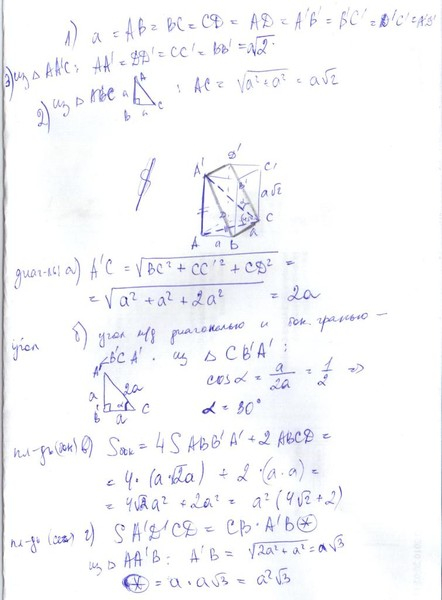 1) a = AB = BC = CD = AD = A'B' = B'C' = D'C' = A'D'
3) из △ AA'C: AA' = DD' = CC' = BB' = a√2.
2) из △ ABC a A B a C : AC = √a²+a² = a√2
A' D' C' B' a√2
A a B a C
диаг-ль: а) A'C = √BC² + CC'² + CD² =
= √a² + a² + 2a² = 2a
угол б) угол м/д диагональю и бок. гранью –
B'CA'. из △ CB'A':
A' a 2a B' a α C
cos α = a/2a = 1/2 =>
α = 30°
пл-дь (бок) в) Sбок = 4 S ABB'A' + 2 ABCD =
= 4 · (a · √2a) + 2 · (a · a) =
= 4√2a² + 2a² = a² (4√2 + 2)
пл-дь (сеч) г) S A'D'CD = CB · A'B ⊛
из △ AA'B: A'B = √2a² + a² = a√3
⊛ = a · a√3 = a²√3